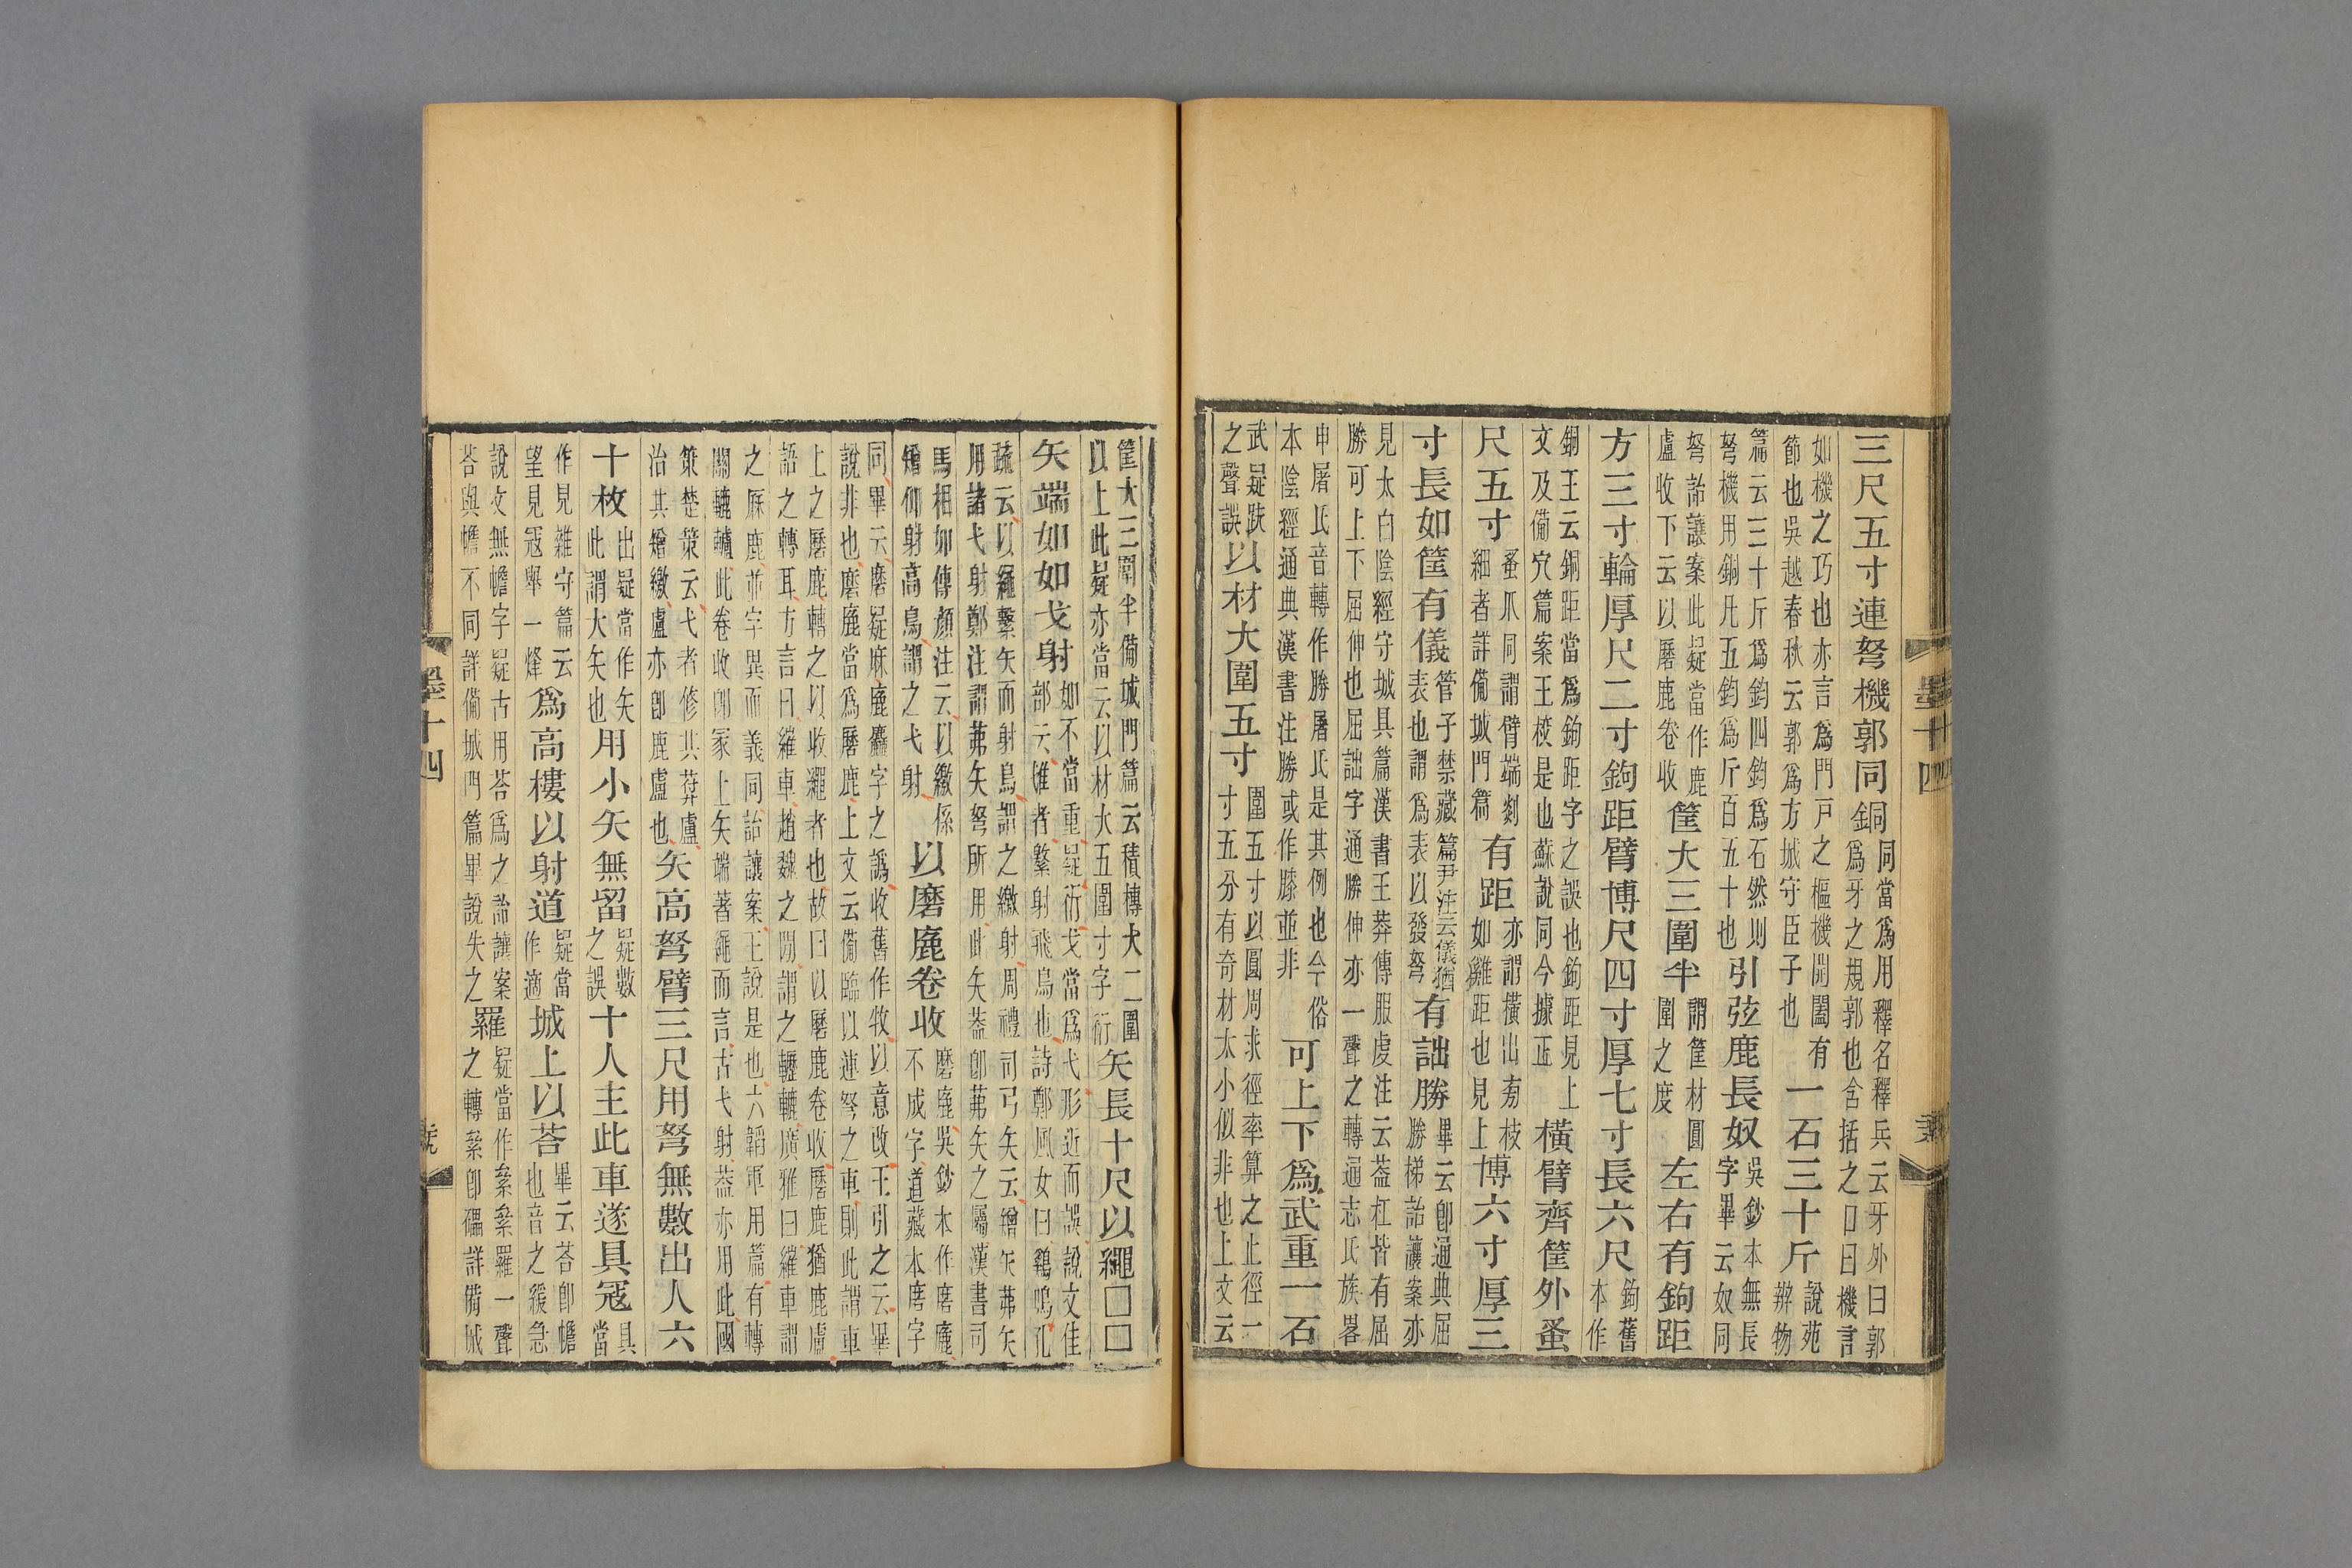 三尺五寸連弩機郭同銅同當爲用釋名釋兵云牙外曰郭爲牙之規郭也含括之口曰機言
如機之巧也亦言爲門戸之樞機開闔有節也吳越春秋云郭爲方城守臣子也一石三十斤說苑辯物
篇云三十斤爲鈞四鈞爲石然則弩機用銅凡五鈞爲斤百五十也引弦鹿長奴吳鈔本無長字畢云奴同
弩詒讓案此疑當作鹿盧收下云以磿鹿卷收筐大三圍半謂筐材圓圍之度左右有鉤距
方三寸輪厚尺二寸鉤距臂博尺四寸厚七寸長六尺鉤舊本作
銅王云銅距當爲鉤距字之誤也鉤距見上文及備穴篇案王校是也蘇說同今據正橫臂齊筐外蚤
尺五寸蚤爪同謂臂端剡細者詳備城門篇有距亦謂橫出旁枝如雞距也見上博六寸厚三
寸長如筐有儀管子禁藏篇尹注云儀猶表也謂爲表以發弩有詘勝畢云卽通典屈勝梯詒讓案亦
見太白陰經守城具篇漢書王莽傳服虔注云葢杠皆有屈勝可上下屈伸也屈詘字通勝伸亦一聲之轉通志氏族畧
申屠氏音轉作勝屠氏是其例也今俗本陰經通典漢書注勝或作膝並非可上下爲武重一石
武疑趺之聲誤以材大圍五寸圍五寸以圓周求徑率算之止徑一寸五分有奇材太小似非也上文云
墨十四
筐大三圍半備城門篇云積槫大二圍以上此疑亦當云以材大五圍寸字衍矢長十尺以繩□□
矢端如如戈射如不當重疑衍戈當爲弋形近而誤說文隹部云惟者繁射飛鳥也詩鄭風女曰鷄鳴孔
疏云以繩繫矢而射鳥謂之繳射周禮司弓矢云矰矢茀矢用諸弋射鄭注謂茀矢弩所用此矢葢卽茀矢之屬漢書司
馬相如傳顏注云以繳係矰仰射高鳥謂之弋射以磨鹿卷收磨鹿吳鈔本作磨麁不成字道藏本磨字
同畢云磨疑麻麁字之譌收舊作牧以意改王引之云畢說非也磨鹿當爲磿鹿上文云備臨以連弩之車則此謂車
上之磿鹿轉之以收繩者也故曰以磿鹿卷收磿鹿猶鹿盧語之轉耳方言曰繀車趙魏之閒謂之轣轆廣雅曰繀車謂
之厤鹿並字異而義同詒讓案王說是也六韜軍用篇有轉關轆轤此卷收卽冢上矢端著繩而言古弋射葢亦用此國
策楚策云弋者修其碆盧治其矰繳盧亦卽鹿盧也矢高弩臂三尺用弩無數出人六
十枚出疑當作矢此謂大矢也用小矢無留疑數之誤十人主此車遂具寇具當
作見雜守篇云望見寇舉一烽爲高樓以射道疑當作適城上以荅畢云荅卽幨也音之緩急
說文無幨字疑古用荅爲之詒讓案荅與幨不同詳備城門篇畢說失之羅疑當作絫絫羅一聲之轉絫卽礧詳備城
墨十四